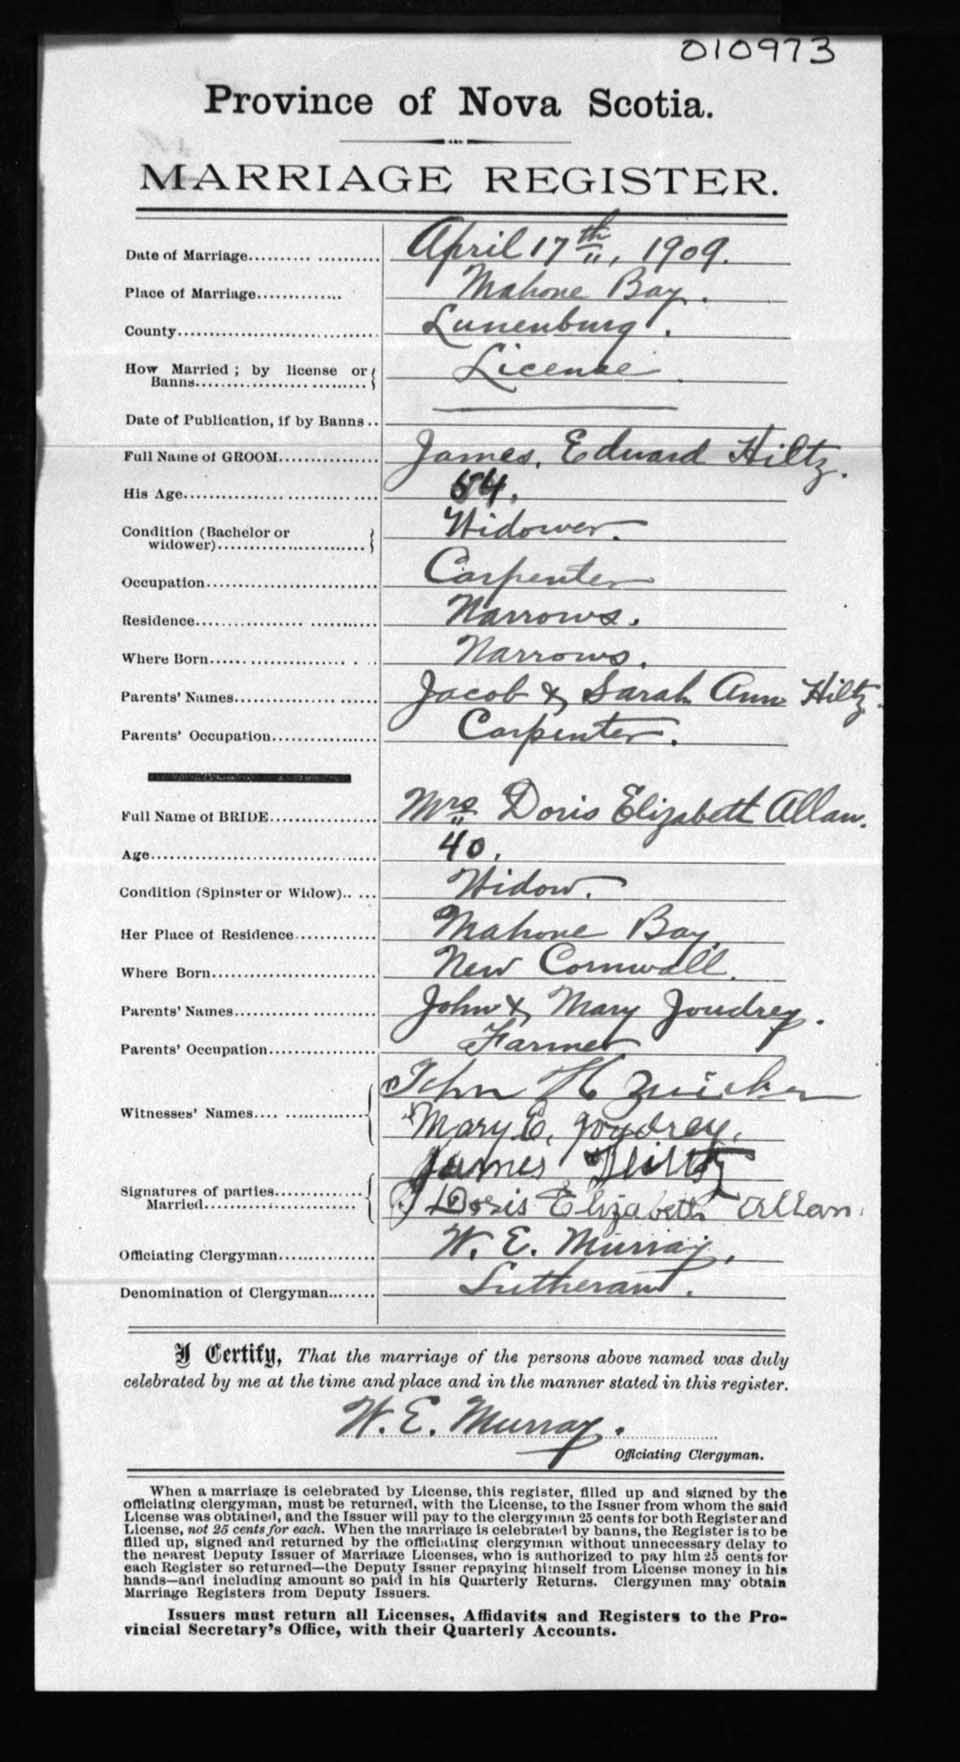 010973
Province of Nova Scotia.
MARRIAGE REGISTER.
Date of Marriage.......... ........... April 17th, 1909.
Place of Marriage.............. Mahone Bay.
County.............................. Lunenburg.
How Married ; by license or
Banns.......................... License.
Date of Publication, if by Banns .. ———
Full Name of GROOM................ James. Edward Hiltz.
His Age............................ 54.
Condition (Bachelor or
widower)......................... Widower.
Occupation.......................... Carpenter
Residence........................... Narrows.
Where Born...................... . . Narrows.
Parents' Names...................... Jacob & Sarah Ann Hiltz.
Parents' Occupation................. Carpenter.
Full Name of BRIDE................ Mrs Doris Elizabeth Allan.
Age................................. 40.
Condition (Spinster or Widow).. ... Widow.
Her Place of Residence............. Mahone Bay.
Where Born......................... New Cornwall.
Parents' Names...................... John & Mary Joudrey.
Parents' Occupation................. Farmer
John H Zwicker
Witnesses' Names.... .............. Mary E. Joudrey.
James Hiltz
Signatures of parties..............
Married......................... Doris Elizabeth Allan.
Officiating Clergyman............... W. E. Murray.
Denomination of Clergyman........ Lutheran.
I Certify, That the marriage of the persons above named was duly
celebrated by me at the time and place and in the manner stated in this register.
W. E. Murray.
Officiating Clergyman.
When a marriage is celebrated by License, this register, filled up and signed by the
officiating clergyman, must be returned, with the License, to the Issuer from whom the said
License was obtained, and the Issuer will pay to the clergyman 25 cents for both Register and
License, not 25 cents for each. When the marriage is celebrated by banns, the Register is to be
filled up, signed and returned by the officiating clergyman without unnecessary delay to
the nearest Deputy Issuer of Marriage Licenses, who is authorized to pay him 25 cents for
each Register so returned—the Deputy Issuer repaying himself from License money in his
hands—and including amount so paid in his Quarterly Returns. Clergymen may obtain
Marriage Registers from Deputy Issuers.
Issuers must return all Licenses, Affidavits and Registers to the Pro-
vincial Secretary's Office, with their Quarterly Accounts.